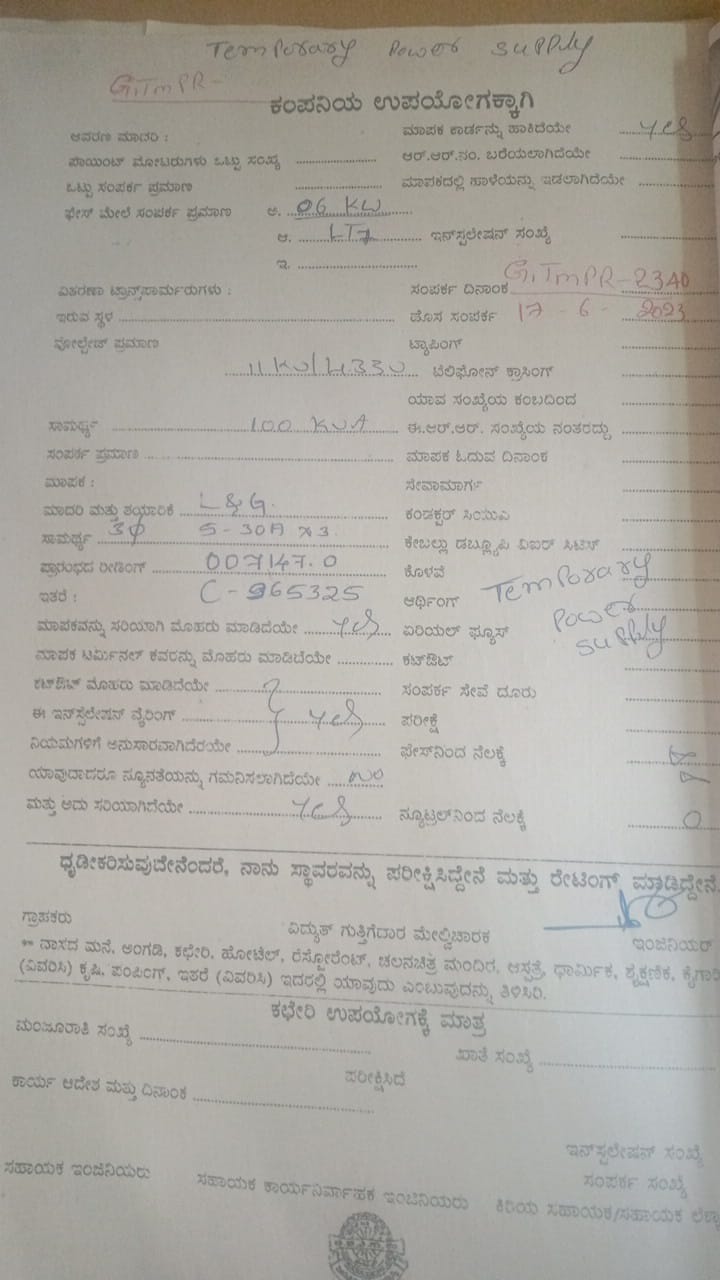 Temporary Power Supply
GiTmPR-
ಕಂಪನಿಯ ಉಪಯೋಗಕ್ಕಾಗಿ
ಆವರಣ ಮಾದರಿ : ಮಾಪಕ ಕಾರ್ಡನ್ನು ಹಾಕಿದೆಯೇ yes
ಪಾಯಿಂಟ್ ಮೋಟರುಗಳು ಒಟ್ಟು ಸಂಖ್ಯೆ ಆರ್.ಆರ್.ನಂ. ಬರೆಯಲಾಗಿದೆಯೇ
ಒಟ್ಟು ಸಂಪರ್ಕ ಪ್ರಮಾಣ ಮಾಪಕದಲ್ಲಿ ಹಾಳೆಯನ್ನು ಇಡಲಾಗಿದೆಯೇ
ಫೇಸ್ ಮೇಲೆ ಸಂಪರ್ಕ ಪ್ರಮಾಣ ಅ. 06 KW
ಆ. LT7 ಇನ್‌ಸ್ಟಲೇಷನ್ ಸಂಖ್ಯೆ
ಇ.
ವಿತರಣಾ ಟ್ರಾನ್ಸ್‌ಫಾರ್ಮರುಗಳು : ಸಂಪರ್ಕ ದಿನಾಂಕ GiTmPR-2340
ಇರುವ ಸ್ಥಳ ಹೊಸ ಸಂಪರ್ಕ 17-6-2023
ವೋಲ್ಟೇಜ್ ಪ್ರಮಾಣ ಟ್ಯಾಪಿಂಗ್
11KV/433V ಟೆಲಿಫೋನ್ ಕ್ರಾಸಿಂಗ್
ಯಾವ ಸಂಖ್ಯೆಯ ಕಂಬದಿಂದ
ಸಾಮರ್ಥ್ಯ 100 KVA ಈ.ಆರ್.ಆರ್. ಸಂಖ್ಯೆಯ ನಂತರದ್ದು
ಸಂಪರ್ಕ ಪ್ರಮಾಣ ಮಾಪಕ ಓದುವ ದಿನಾಂಕ
ಮಾಪಕ : ಸೇವಾಮಾರ್ಗ
ಮಾದರಿ ಮತ್ತು ತಯಾರಿಕೆ L&G. ಕಂಡಕ್ಟರ್ ಸಿಯುವಿ
ಸಾಮರ್ಥ್ಯ 3Φ 5-30A x3 ಕೇಬಲ್ಲು ಡಬ್ಲ್ಯೂಪಿ ವಿಐಆರ್ ಸಿಟಿಎಸ್
ಪ್ರಾರಂಭದ ರೀಡಿಂಗ್ 007147.0 ಕೊಳವೆ
ಇತರೆ : C-965325 ಅರ್ಥಿಂಗ್ Temporary Power Supply
ಮಾಪಕವನ್ನು ಸರಿಯಾಗಿ ಮೊಹರು ಮಾಡಿದೆಯೇ yes ಏರಿಯಲ್ ಫ್ಯೂಸ್
ಮಾಪಕ ಟರ್ಮಿನಲ್ ಕವರನ್ನು ಮೊಹರು ಮಾಡಿದೆಯೇ ಕಟ್‌ಔಟ್
ಕಟ್‌ಔಟ್ ಮೊಹರು ಮಾಡಿದೆಯೇ ಸಂಪರ್ಕ ಸೇವೆ ದೂರು
ಈ ಇನ್‌ಸ್ಟಲೇಷನ್ ವೈರಿಂಗ್ yes ಪರೀಕ್ಷೆ
ನಿಯಮಗಳಿಗೆ ಅನುಸಾರವಾಗಿದೆರಯೇ ಫೇಸ್‌ನಿಂದ ನೆಲಕ್ಕೆ
ಯಾವುದಾದರೂ ನ್ಯೂನತೆಯನ್ನು ಗಮನಿಸಲಾಗಿದೆಯೇ no
ಮತ್ತು ಅದು ಸರಿಯಾಗಿದೆಯೇ yes ನ್ಯೂಟ್ರಲ್‌ನಿಂದ ನೆಲಕ್ಕೆ 0
ಧೃಡೀಕರಿಸುವುದೇನೆಂದರೆ, ನಾನು ಸ್ಥಾವರವನ್ನು ಪರೀಕ್ಷಿಸಿದ್ದೇನೆ ಮತ್ತು ರೇಟಿಂಗ್ ಮಾಡಿದ್ದೇನೆ.
ಗ್ರಾಹಕರು ವಿದ್ಯುತ್ ಗುತ್ತಿಗೆದಾರ ಮೇಲ್ವಿಚಾರಕ ಇಂಜಿನಿಯರ್
** ವಾಸದ ಮನೆ, ಅಂಗಡಿ, ಕಛೇರಿ, ಹೋಟೆಲ್, ರೆಸ್ಟೋರೆಂಟ್, ಚಲನಚಿತ್ರ ಮಂದಿರ, ಆಸ್ಪತ್ರೆ, ಧಾರ್ಮಿಕ, ಶೈಕ್ಷಣಿಕ, ಕೈಗಾರಿ
(ವಿವರಿಸಿ) ಕೃಷಿ, ಪಂಪಿಂಗ್, ಇತರೆ (ವಿವರಿಸಿ) ಇದರಲ್ಲಿ ಯಾವುದು ಎಂಬುವುದನ್ನು ತಿಳಿಸಿರಿ.
ಕಛೇರಿ ಉಪಯೋಗಕ್ಕೆ ಮಾತ್ರ
ಮಂಜೂರಾತಿ ಸಂಖ್ಯೆ ಖಾತೆ ಸಂಖ್ಯೆ
ಪರೀಕ್ಷಿಸಿದೆ
ಕಾರ್ಯ ಆದೇಶ ಮತ್ತು ದಿನಾಂಕ
ಇನ್‌ಸ್ಟಲೇಷನ್ ಸಂಖ್ಯೆ
ಸಂಪರ್ಕ ಸಂಖ್ಯೆ
ಸಹಾಯಕ ಇಂಜಿನಿಯರು ಸಹಾಯಕ ಕಾರ್ಯನಿರ್ವಾಹಕ ಇಂಜಿನಿಯರು ಕಿರಿಯ ಸಹಾಯಕ/ಸಹಾಯಕ ಲೆಕ್ಕ